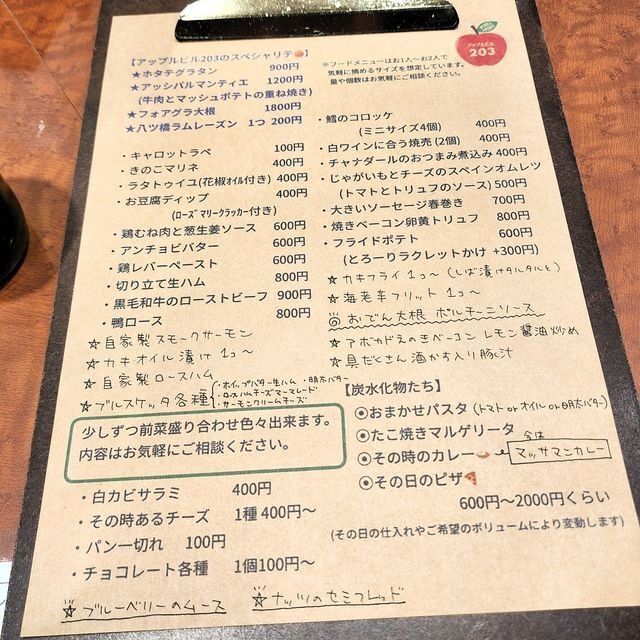 【アップルビル203のスペシャリテ🍎】
★ホタテグラタン 900円
★アッシパルマンティエ 1200円
(牛肉とマッシュポテトの重ね焼き)
★フォアグラ大根 1800円
★八ツ橋ラムレーズン 1つ 200円
・キャロットラペ 100円
・きのこマリネ 400円
・ラタトゥイユ(花椒オイル付き) 400円
・お豆腐ディップ 400円
(ローズマリークラッカー付き)
・鶏むね肉と葱生姜ソース 600円
・アンチョビバター 600円
・鶏レバーペースト 600円
・切り立て生ハム 800円
・黒毛和牛のローストビーフ 900円
・鴨ロース 800円
☆自家製スモークサーモン
☆カキオイル漬け 1コ〜
☆自家製ロースハム
☆ブルスケッタ各種
・ホイップバター生ハム ・明太バター
・ロースハムチーズマーマレード
・サーモンクリームチーズ
少しずつ前菜盛り合わせ色々出来ます。
内容はお気軽にご相談ください。
・白カビサラミ 400円
・その時あるチーズ 1種 400円〜
・パン一切れ 100円
・チョコレート各種 1個100円〜
☆ブルーベリーのムース ☆ナッツのセミフレッド
アップルビル
203
※フードメニューはお1人〜お2人で
気軽に摘めるサイズを想定しています。
量や個数はお気軽にご相談ください。
・鱈のコロッケ 400円
(ミニサイズ4個)
・白ワインに合う焼売(2個) 400円
・チャナダールのおつまみ煮込み 400円
・じゃがいもとチーズのスペインオムレツ
(トマトとトリュフのソース) 500円
・大きいソーセージ春巻き 700円
・焼きベーコン卵黄トリュフ 800円
・フライドポテト 600円
(とろーりラクレットかけ +300円)
☆カキフライ 1コ〜 (しば漬けタルタルと)
☆海老辛フリット 1コ〜
◎おでん大根 ポルチーニソース
☆アボカドとのきベーコン レモン醤油炒め
☆具だくさん酒かす入り豚汁
【炭水化物たち】
◉おまかせパスタ (トマト or オイル or 明太バター)
◉たこ焼きマルゲリータ
◉その時のカレー🍛 今は マッサマンカレー
◉その日のピザ🍕
600円〜2000円くらい
(その日の仕入れやご希望のボリュームにより変動します)